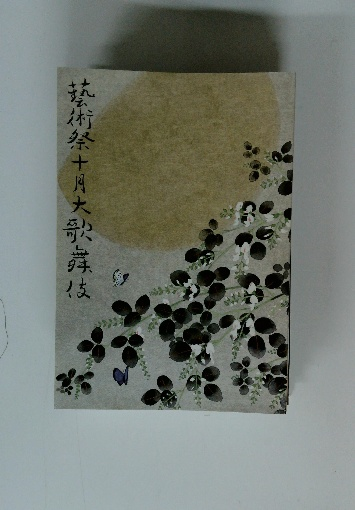 藝術祭十月大歌舞伎